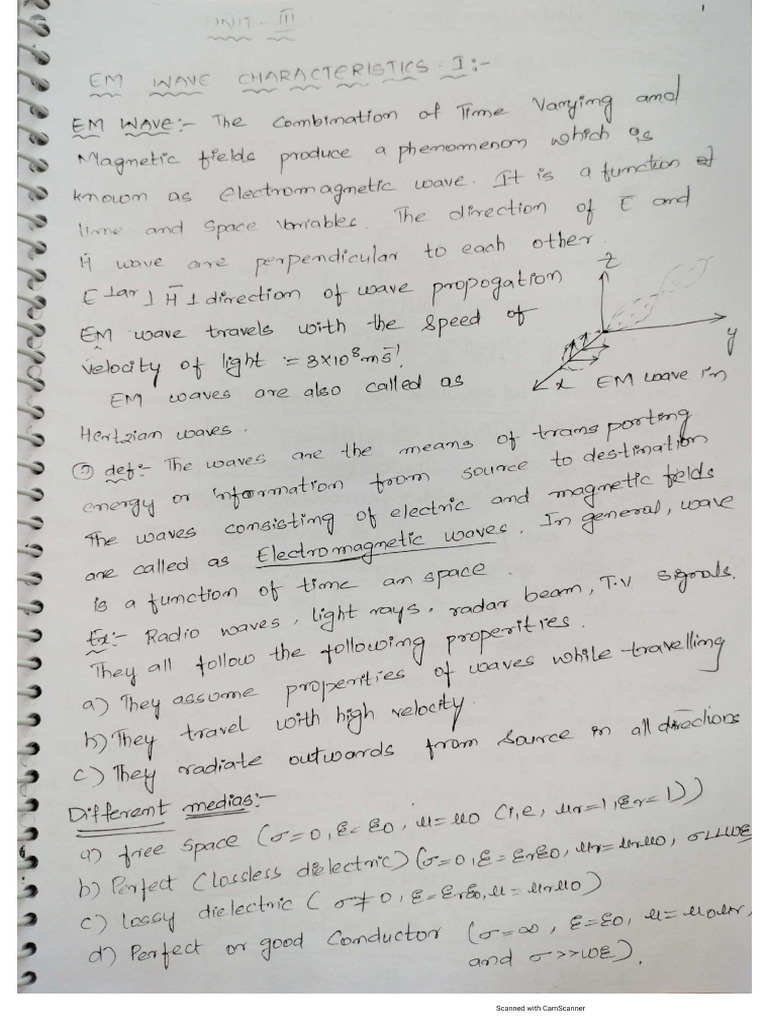 UNIT - III
EM WAVE CHARACTERISTICS - I :-
EM WAVE:- The Combination of Time Varying and
Magnetic fields produce a phenomenon which is
known as electromagnetic wave. It is a function of
time and space variables. The direction of E and
H wave are perpendicular to each other.
E ⊥ar ⊥ H̄ ⊥ direction of wave propogation
EM wave travels with the speed of
velocity of light = 3×10⁸ms⁻¹.
EM waves are also called as
Hertzian waves.
z
y
x EM wave in
def:- The waves are the means of transporting
energy or information from source to destination
The waves consisting of electric and magnetic fields
are called as Electromagnetic waves. In general, wave
is a function of time an space.
Ex:- Radio waves, light rays, radar beam, T.V signals.
They all follow the following properities.
a) They assume properities of waves while travelling
b) They travel with high velocity.
c) They radiate outwards from source in all directions
Different medias:-
a) free space (σ=0, ε=ε0, μ=μ0 (i,e, μr=1, εr=1))
b) Perfect (lossless dielectric) (σ=0, ε=εrε0, μr=μrμ0, σ<<ωε
c) lossy dielectric (σ≠0, ε=εrε0, μ=μrμ0)
d) Perfect or good Conductor (σ=∞, ε=ε0, μ=μ0μr,
and σ>>ωε).
Scanned with CamScanner